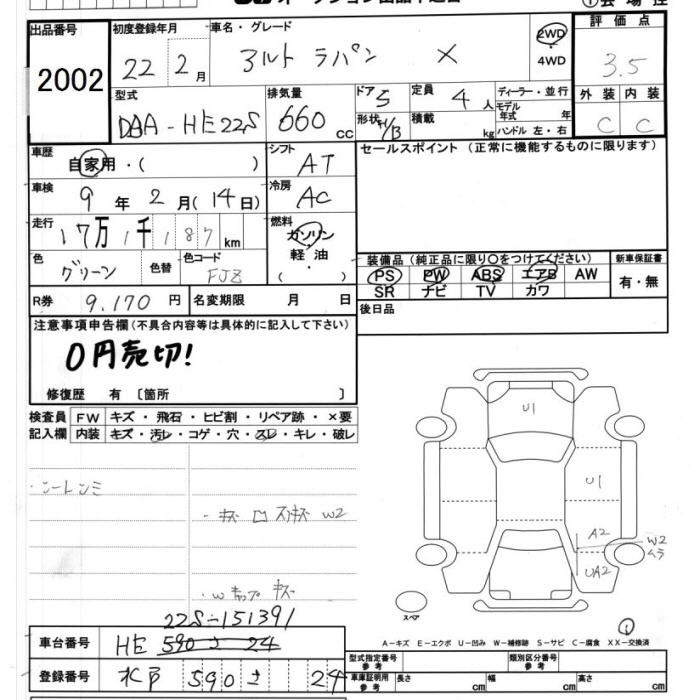 出品番号
2002
初度登録年月
22 2月
車名・グレード
アルト ラパン X
2WD
・
4WD
評価点
3.5
外装 内装
C C
型式
DBA-HE22S
排気量
660 cc
ドア 5
形状
定員 4人
積載 kg
ディーラー・並行
モデル年式 年
ハンドル 左・右
車歴
自家用・( )
シフト
AT
セールスポイント (正常に機能するものに限ります)
車検
9年 2月(14日)
冷房
AC
走行
17万1千187km
燃料
ガソリン
・
軽油
・
( )
色
グリーン
色替
色コード
FJZ
装備品 (純正品に限り○をつけてください)
PS PW ABS エアB AW
SR ナビ TV カワ
新車保証書
有・無
R券 9,170円
名変期限 月 日
後日品
注意事項申告欄(不具合内容等は具体的に記入して下さい)
0円売切!
修復歴 有 〔箇所 〕
検査員
記入欄
FW キズ・飛石・ヒビ割・リペア跡・×要
内装 キズ・汚レ・コゲ・穴・スレ・キレ・破レ
U1
U1
A2
W2
ムラ
UA2
W2
スペア
22S-151391
A-キズ E-エクボ U-凹み W-補修跡 S-サビ C-腐食 XX-交換済
車台番号 HE 590 さ 24
登録番号 水戸 590 さ 24
型式指定番号
参考
類別区分番号
参考
車庫証明用
参考
長さ cm
幅 cm
高さ cm